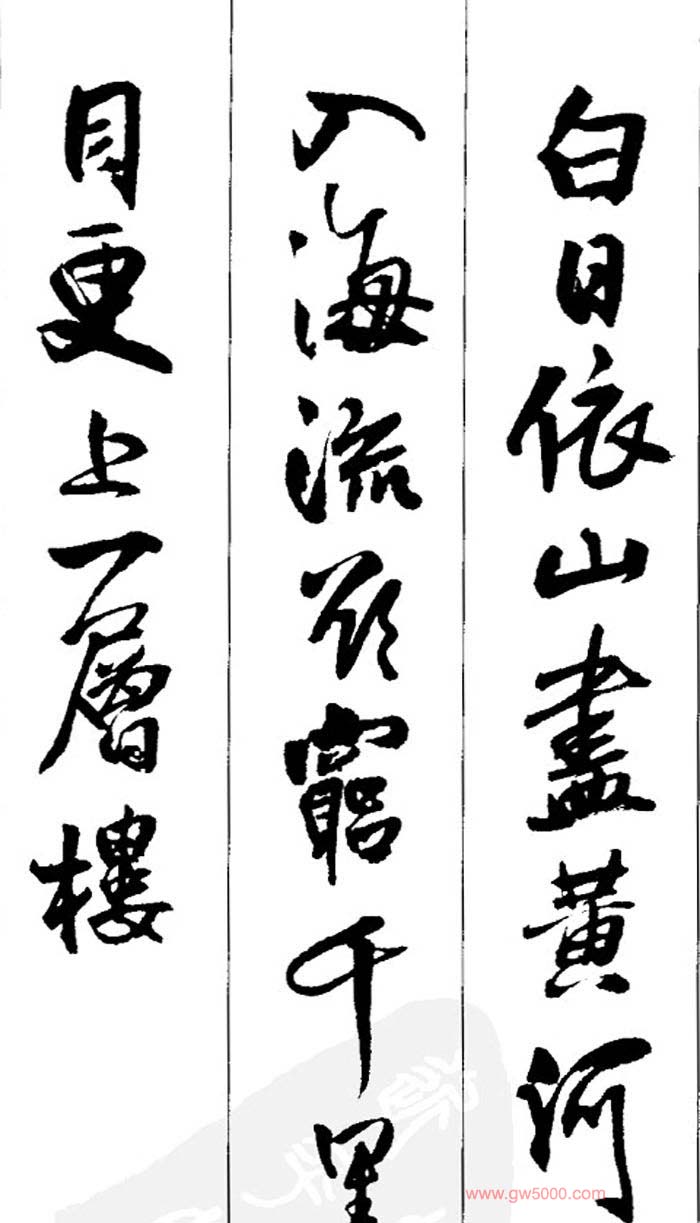 白日依山盡黄河
入海流欲窮千里
目更上一層樓
www.gw5000.com